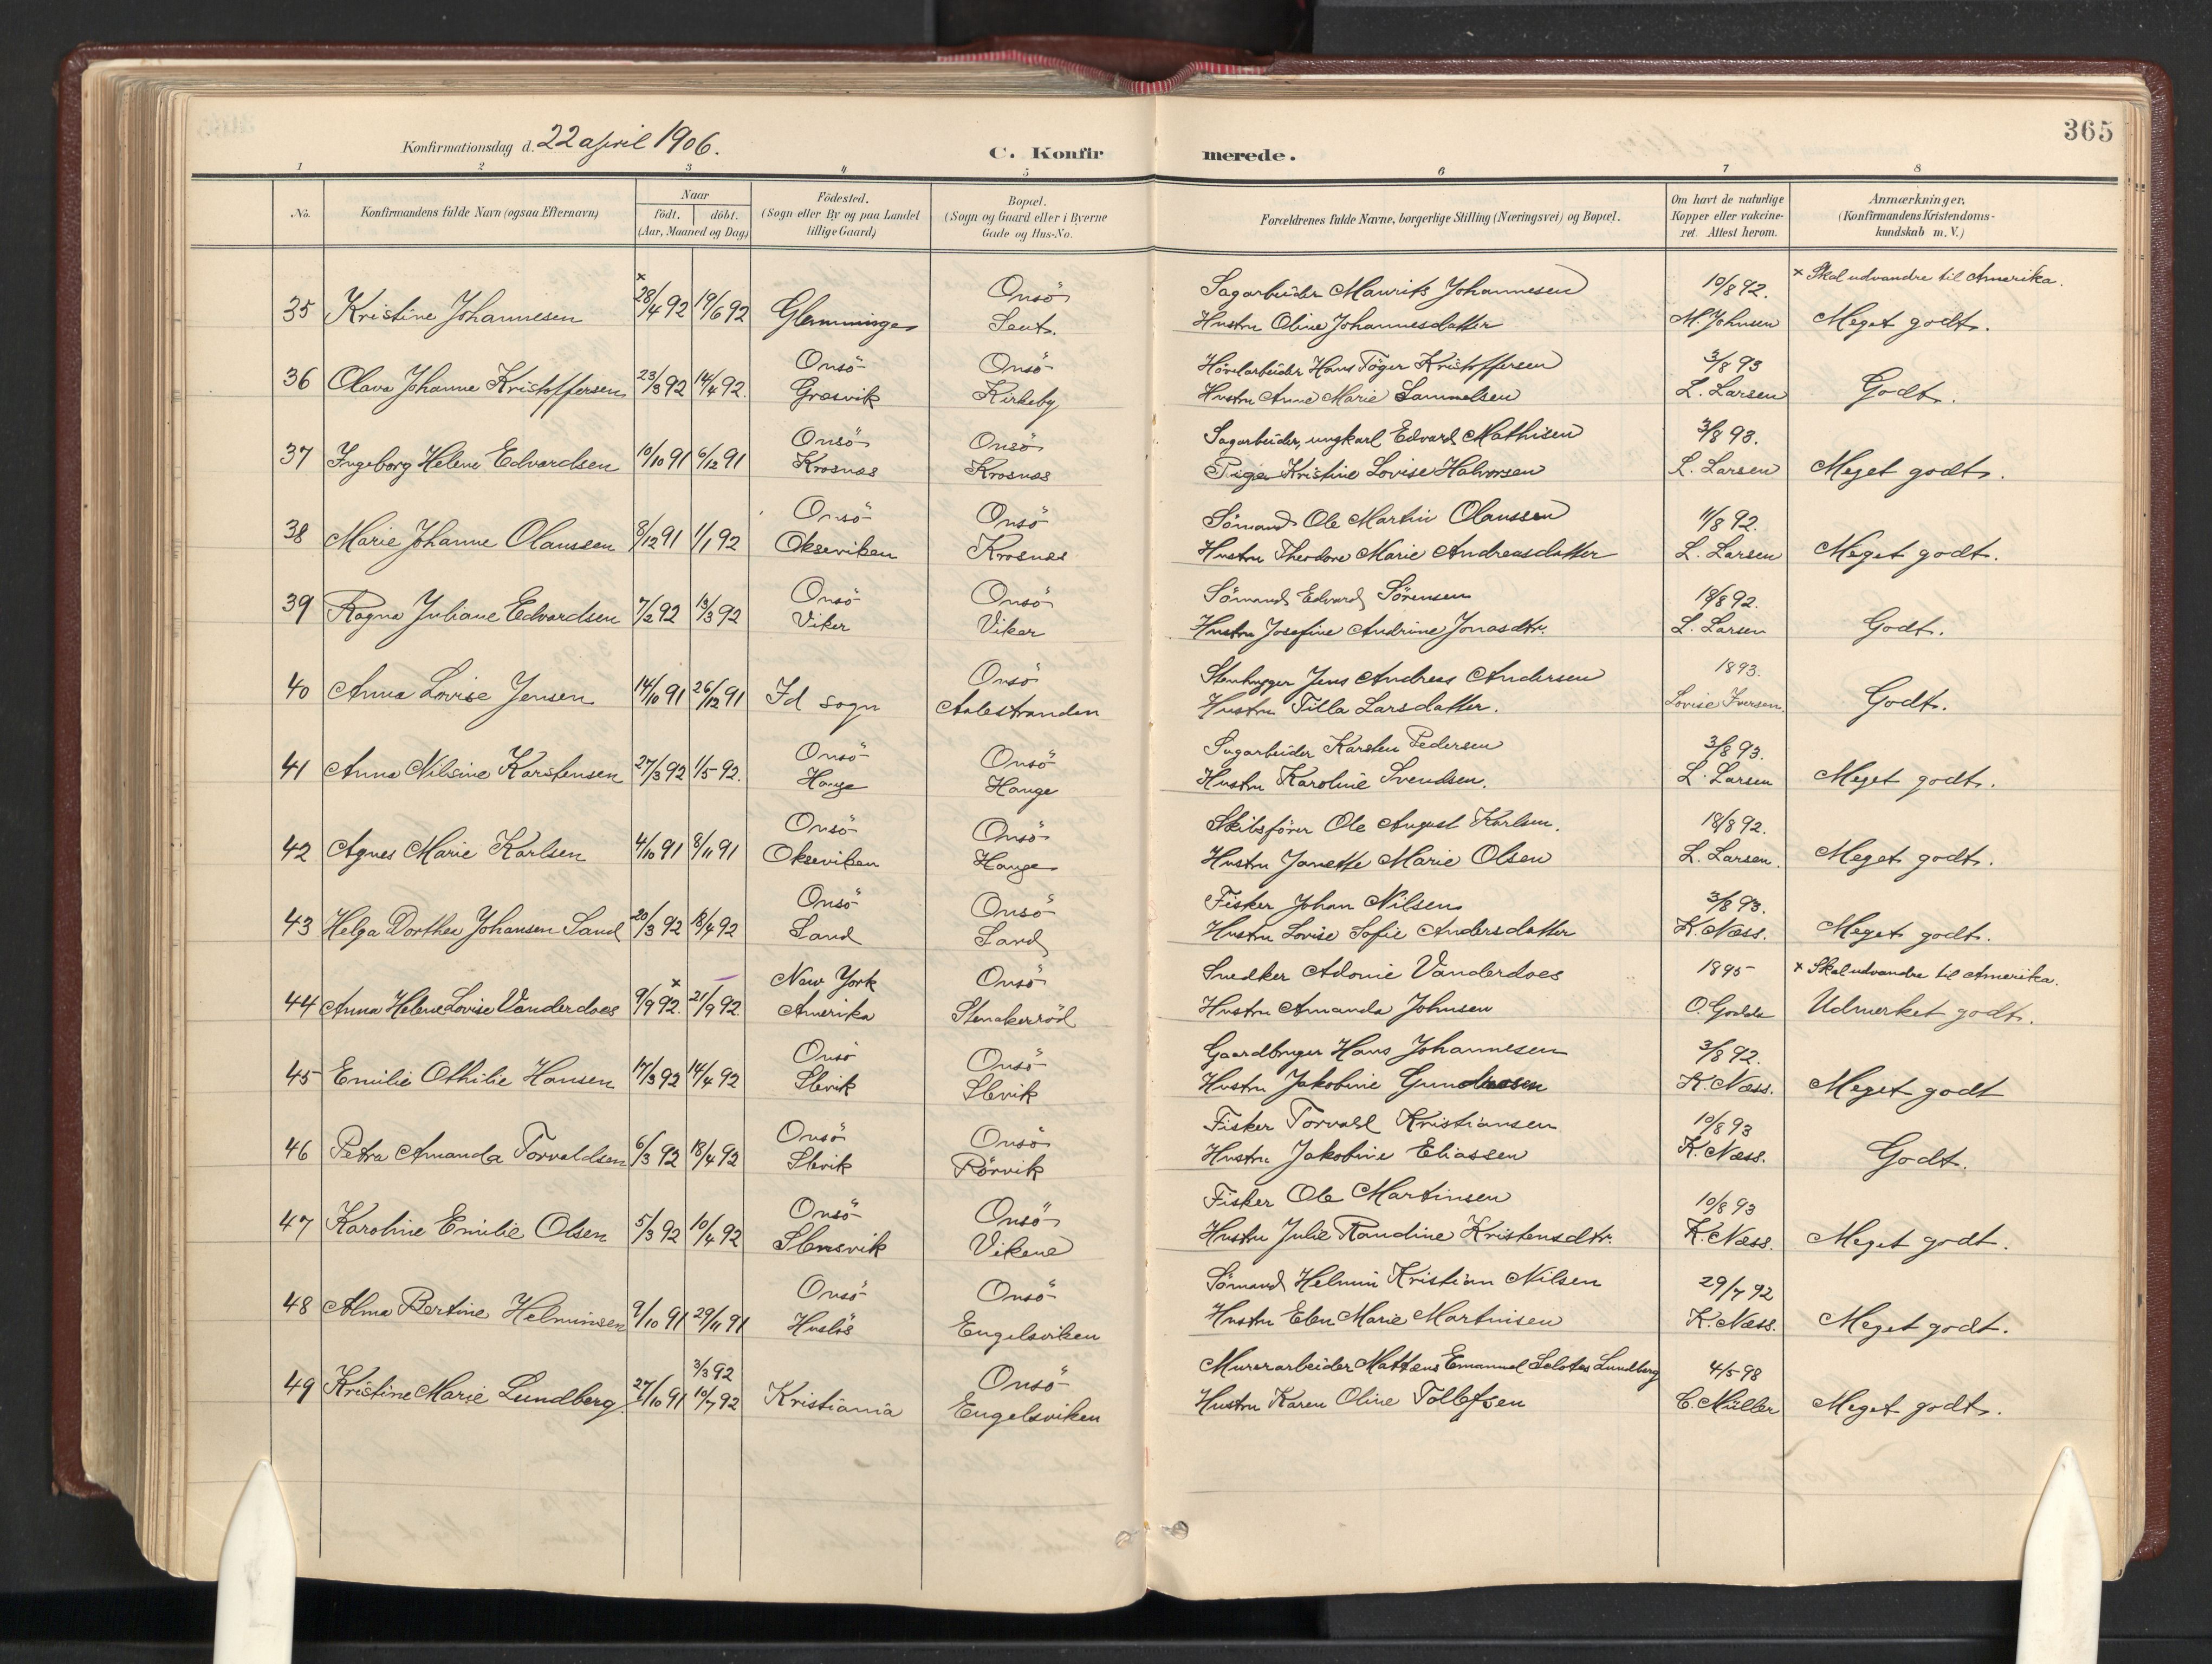 365
Konfirmationsdag d. 22 april 1906.
C. Konfirmerede.
1 2 3 4 5 6 7 8
No. Konfirmandens fulde Navn (ogsaa Efternavn) Naar født. døbt. (Aar, Maaned og Dag) Fødested. (Sogn eller By og paa Landet tillige Gaard) Bopæl. (Sogn og Gaard eller i Byerne Gade og Hus-No. Forældrenes fulde Navne, borgerlige Stilling (Næringsvei) og Bopæl. Om havt de naturlige Kopper eller vakcineret. Attest herom. Anmærkninger, (Konfirmandens Kristendomskundskab m. V.)
× Onsö Sagarbeider Maurits Johannesen 10/8 92. × Skal udvandre til Amerika.
35 Kristine Johannesen 28/4 92 19/6 92 Glemminge Hustru Oline Johannesdatter M. Johnsen Meget godt.
Onsö Onsö Hans Töger Kristoffersen 3/8 93
36 Olava Johanne Kristoffersen 23/3 92 14/4 92. Gresvik Kirkeby Hustru Anne Marie Samuelsen L. Larsen Godt.
Onsö Onsö Sagarbeider, ungkarl Edvard Mathisen 3/8 93.
37 Ingeborg Helene Edvardsen 10/10 91 6/12 91 Krosnes Krosnes Pige Kristine Lovise Halvorsen L. Larsen Meget godt.
Onsö Onsö Sömand Ole Martin Olaussen 11/8 92.
38 Marie Johanne Olaussen 8/12 91 1/1 92 Okseviken Krosnes Hustru Theodore Marie Andreasdatter L. Larsen Meget godt.
Onsö Onsö Sömand Edvard Sörensen 18/8 92.
39 Ragna Juliane Edvardsen 7/2 92 13/3 92 Viker Viker Hustru Josefine Andrine Jonasdtr. L. Larsen Godt.
Onsö Stenhugger Jens Andreas Andersen 1893.
40 Anna Lovise Jensen 14/10 91 26/12 91 Id sogn Aalestranden Hustru Tilla Larsdatter. Lovise Iversen. Godt.
Onsö Onsö Sagarbeider Karsten Pedersen 3/8 93.
41 Anna Nilsine Karstensen 27/3 92 1/5 92. Hauge Hauge Hustru Karoline Svendsen. L. Larsen Meget godt.
Onsö Onsö Skibsförer Ole August Karlsen. 18/8 92.
42 Agnes Marie Karlsen 4/10 91 8/11 91 Okseviken Hauge Hustru Janette Marie Olsen L. Larsen. Meget godt.
Onsö Onsö Fisker Johan Nilsen 3/8 93.
43 Helga Dorthea Johansen Sand 20/3 92 18/4 92 Sand Sand Hustru Lovise Sofie Andersdatter K. Næss. Meget godt.
× New York Onsö Snedker Adonie Vanderdoes 1895 × Skal udvandre til Amerika.
44 Anna Helene Lovise Vanderdoes 9/9 92. 21/9 92. Amerika Stenakerröd Hustru Amanda Johnsen O. Udmerket godt.
Onsö Onsö Gaardbruger Hans Johannesen 3/8 92.
45 Emilie Othilie Hansen 17/3 92 14/4 92 Slevik Slevik Hustru Jakobine Gundersen K. Næss. Meget godt
Onsö Onsö Fisker Torvald Kristiansen 10/8 93
46 Petra Amanda Torvaldsen 6/3 92 18/4 92 Slevik Rörvik Hustru Jakobine Eliassen K. Næss. Godt.
Onsö Onsö Fisker Ole Martinsen 10/8 93
47 Karoline Emilie Olsen 5/3 92 10/4 92 Slevik Vikene Hustru Julie Randine Kristensdtr. K. Næss. Meget godt.
Onsö Onsö Sömand Helmin Kristian Nilsen 29/7 92
48 Alma Bertine Helminsen 9/10 91 29/11 91 Huslös Engelsviken Hustru Elen Marie Martinisen K. Næss. Meget godt.
3/3 92 Onsö Murerarbeider Mattæus Emanuel Lundberg 4/5 98
49 Kristine Marie Lundberg. 27/10 91 10/7 92 Kristiania Engelsviken Hustru Karen Oline Tollefsen C. Müller Meget godt.